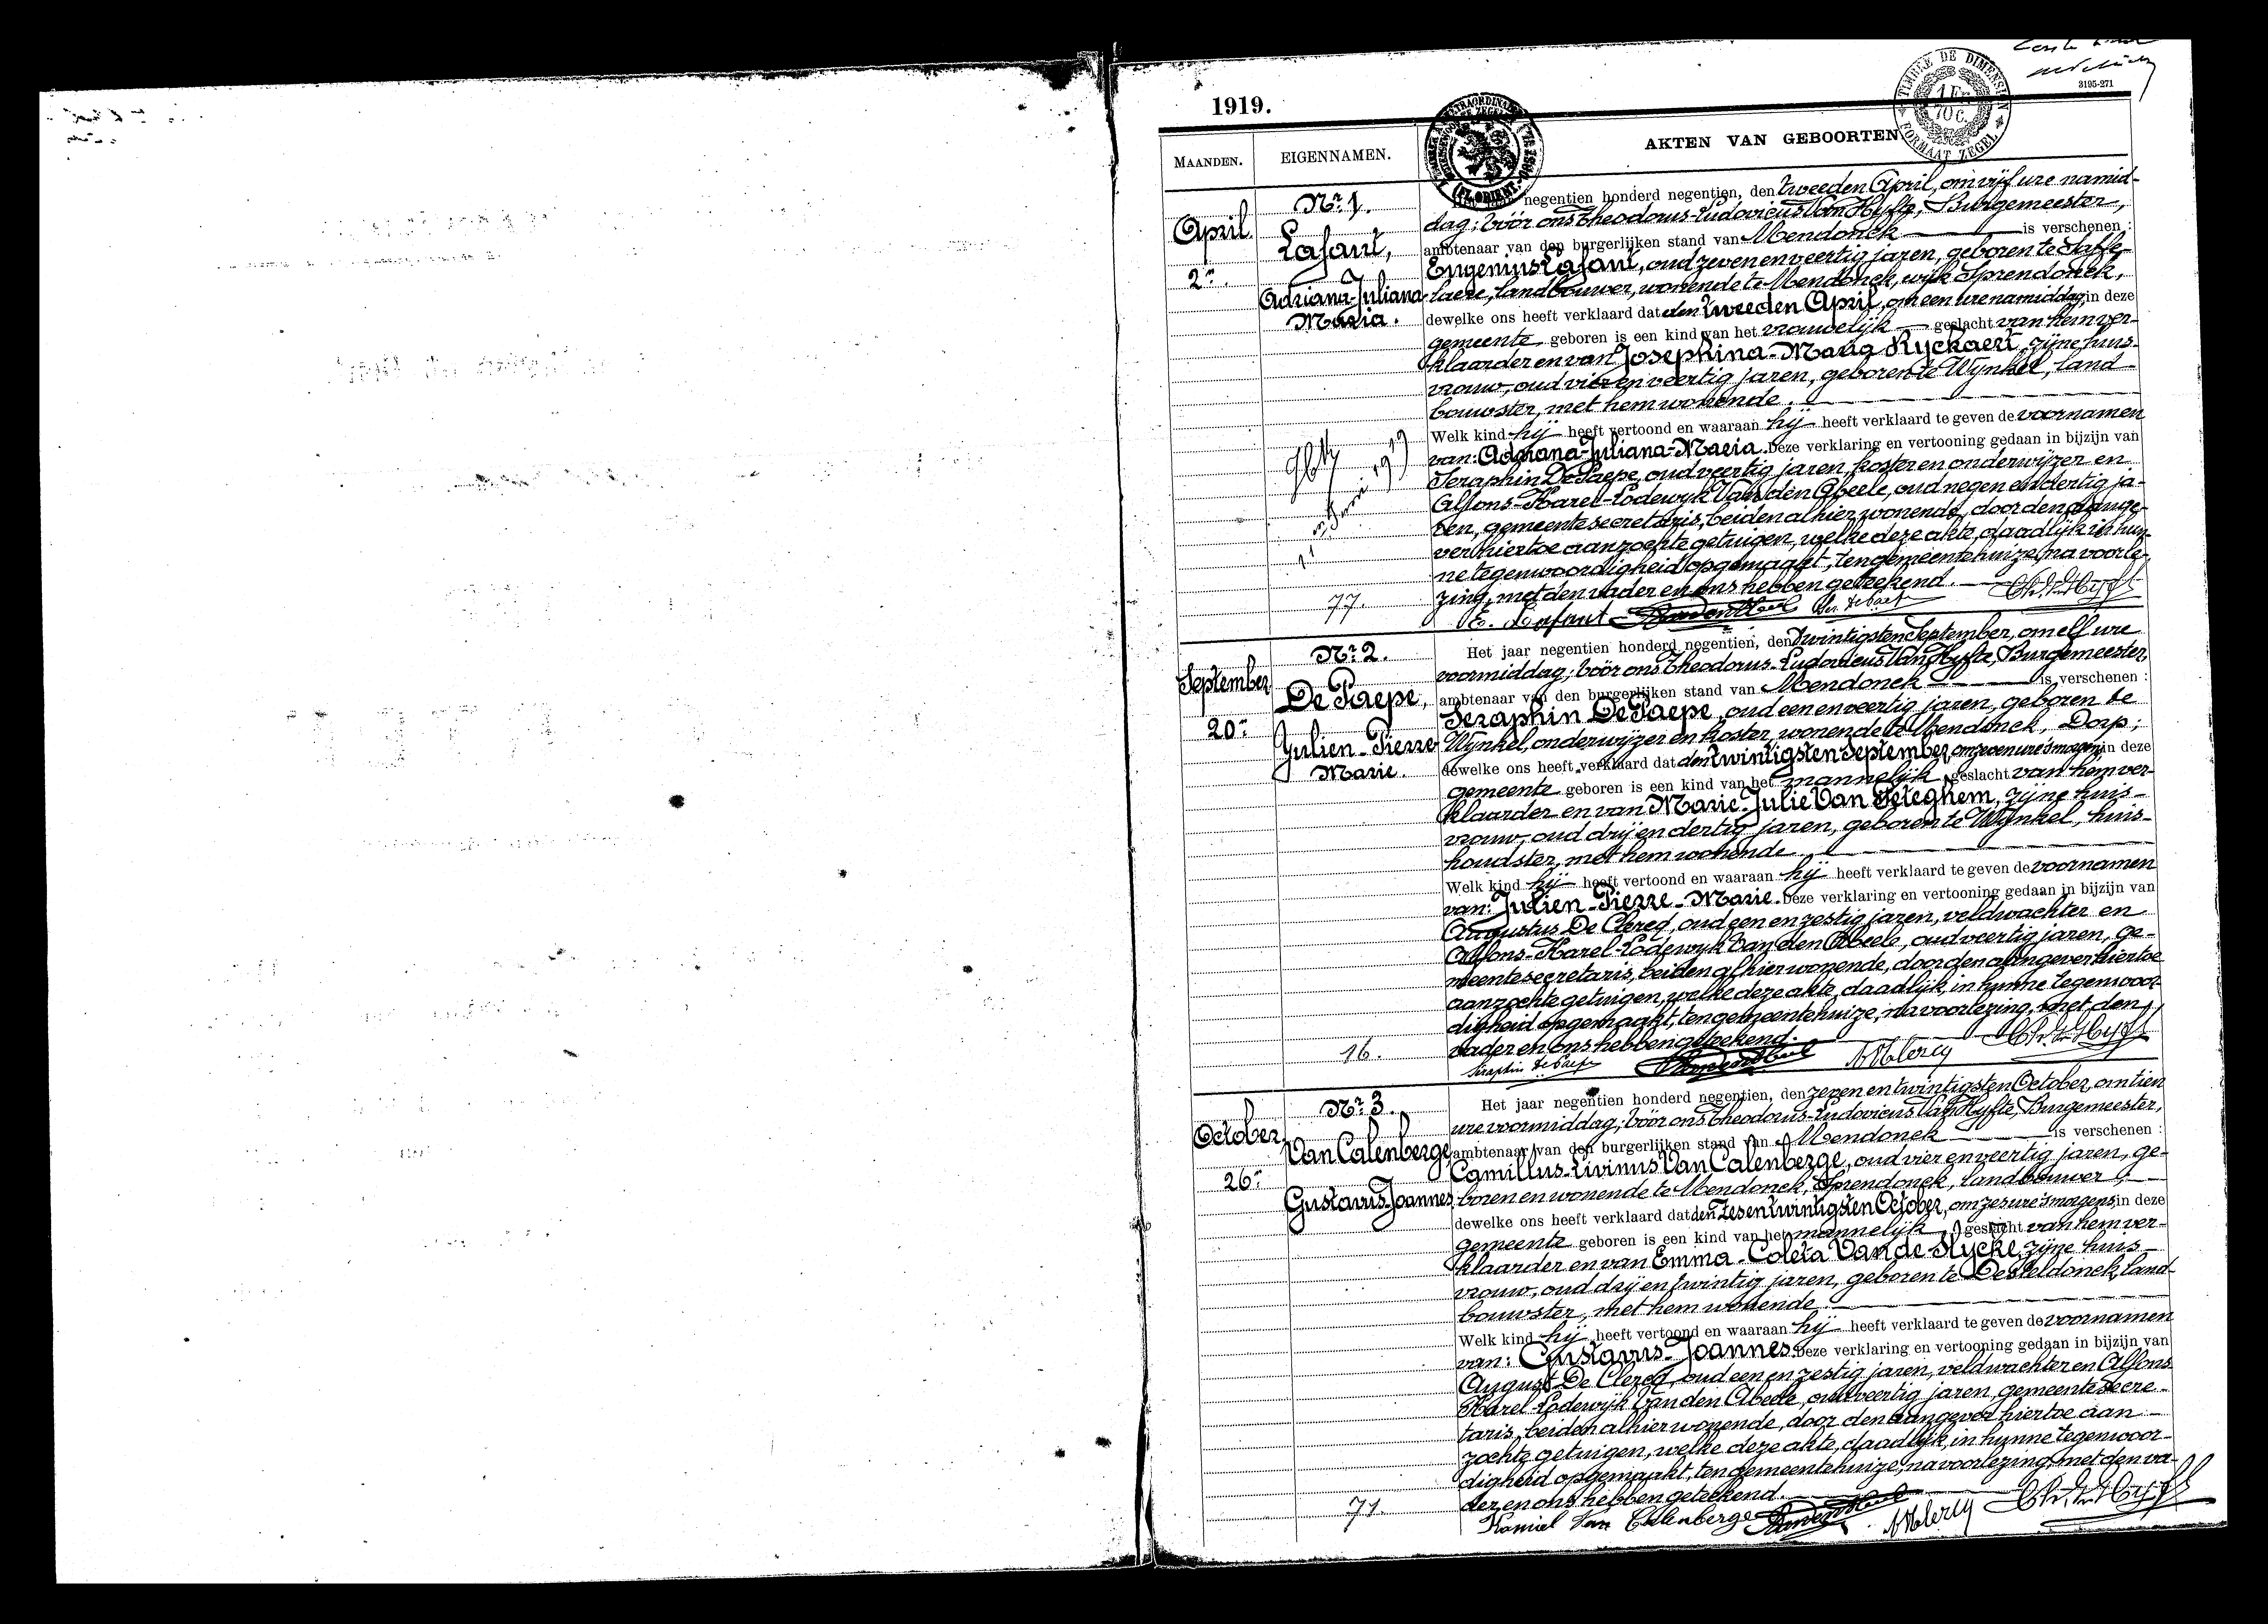 1919.
3195-271
TIMBRE DE DIMENSION
1 Fr.
70 c.
FORMAAT ZEGEL
MAANDEN.
EIGENNAMEN.
AKTEN VAN GEBOORTEN
April
2n.
Nr. 1.
Lafaut,
Adriana-Juliana-
Maria.
77.
negentien honderd negentien, den tweeden April, om vijf ure namid-
dag; vóór ons Theodorus-Ludovicus Van Hyfte, Burgemeester,
ambtenaar van den burgerlijken stand van Mendonck is verschenen :
Eugenius Lafaut, oud zeven en veertig jaren, geboren te Saffe-
laere, landbouwer, wonende te Mendonck, wijk Sprendonck,
dewelke ons heeft verklaard dat den tweeden April, om een ure namiddag, in deze
gemeente geboren is een kind van het vrouwelijk geslacht van hem ver-
klaarder en van Josephina-Maria Ryckaert, zijne huis-
vrouw, oud vier en veertig jaren, geboren te Wynkel, land-
bouwster, met hem wonende.
Welk kind hij heeft vertoond en waaraan hij heeft verklaard te geven de voornamen
van: Adriana-Juliana-Maria. Deze verklaring en vertooning gedaan in bijzijn van
Seraphin De Paepe, oud veertig jaren, koster en onderwijzer en
Alfons-Karel-Lodewyk Van den Abeele, oud negen en dertig ja-
ren, gemeentesecretaris, beiden alhier wonende, door den aange-
ver hiertoe aanzochte getuigen, welke deze akte, daadlijk in hun-
ne tegenwoordigheid opgemaakt, ten gemeentehuize, na voorle-
zing, met den vader en ons hebben geteekend.
E. Lafaut
September
20n.
Nr. 2.
De Paepe,
Julien-Pierre
Marie.
16.
Het jaar negentien honderd negentien, den twintigsten September, om elf ure
voormiddag; vóór ons Theodorus-Ludovicus Van Hyfte, Burgemeester,
ambtenaar van den burgerlijken stand van Mendonck is verschenen :
Seraphin De Paepe, oud een en veertig jaren, geboren te
Wynkel, onderwijzer en koster, wonende te Mendonck, Dorp;
dewelke ons heeft verklaard dat den twintigsten September, om zeven ure 's morgens, in deze
gemeente geboren is een kind van het mannelijk geslacht van hem ver-
klaarder en van Marie-Julie Van Peteghem, zijne huis-
vrouw, oud drij en dertig jaren, geboren te Wynkel, huis-
houdster, met hem wonende.
Welk kind hij heeft vertoond en waaraan hij heeft verklaard te geven de voornamen
van: Julien-Pierre-Marie. Deze verklaring en vertooning gedaan in bijzijn van
Augustus De Clercq, oud een en zestig jaren, veldwachter en
Alfons-Karel-Lodewyk Van den Abeele, oud veertig jaren, ge-
meentesecretaris, beiden alhier wonende, door den aangever hiertoe
aanzochte getuigen, welke deze akte, daadlijk, in hunne tegenwoor-
digheid opgemaakt, ten gemeentehuize, na voorlezing, met den
vader en ons hebben geteekend.
Seraphin De Paepe
October
26n.
Nr. 3.
Van Calenberge,
Gustavus-Joannes
71.
Het jaar negentien honderd negentien, den zeven en twintigsten October, om tien
ure voormiddag; vóór ons Theodorus-Ludovicus Van Hyfte, Burgemeester,
ambtenaar van den burgerlijken stand van Mendonck is verschenen :
Camillus-Livinus Van Calenberge, oud vier en veertig jaren, ge-
boren en wonende te Mendonck, Sprendonck, landbouwer;
dewelke ons heeft verklaard dat den zes en twintigsten October, om zes ure 's morgens, in deze
gemeente geboren is een kind van het mannelijk geslacht van hem ver-
klaarder en van Emma-Coleta Van de Slycke, zijne huis-
vrouw, oud drij en twintig jaren, geboren te Desteldonck, land-
bouwster, met hem wonende.
Welk kind hij heeft vertoond en waaraan hij heeft verklaard te geven de voornamen
van: Gustavus-Joannes. Deze verklaring en vertooning gedaan in bijzijn van
August De Clercq, oud een en zestig jaren, veldwachter en Alfons
Karel Lodewijk Van den Abeele, oud veertig jaren, gemeentesecre-
taris, beiden alhier wonende, door den aangever hiertoe aan-
zochte getuigen, welke deze akte, daadlijk, in hunne tegenwoor-
digheid opgemaakt, ten gemeentehuize, na voorlezing, met den va-
der en ons hebben geteekend.
Kamiel Van Calenberge